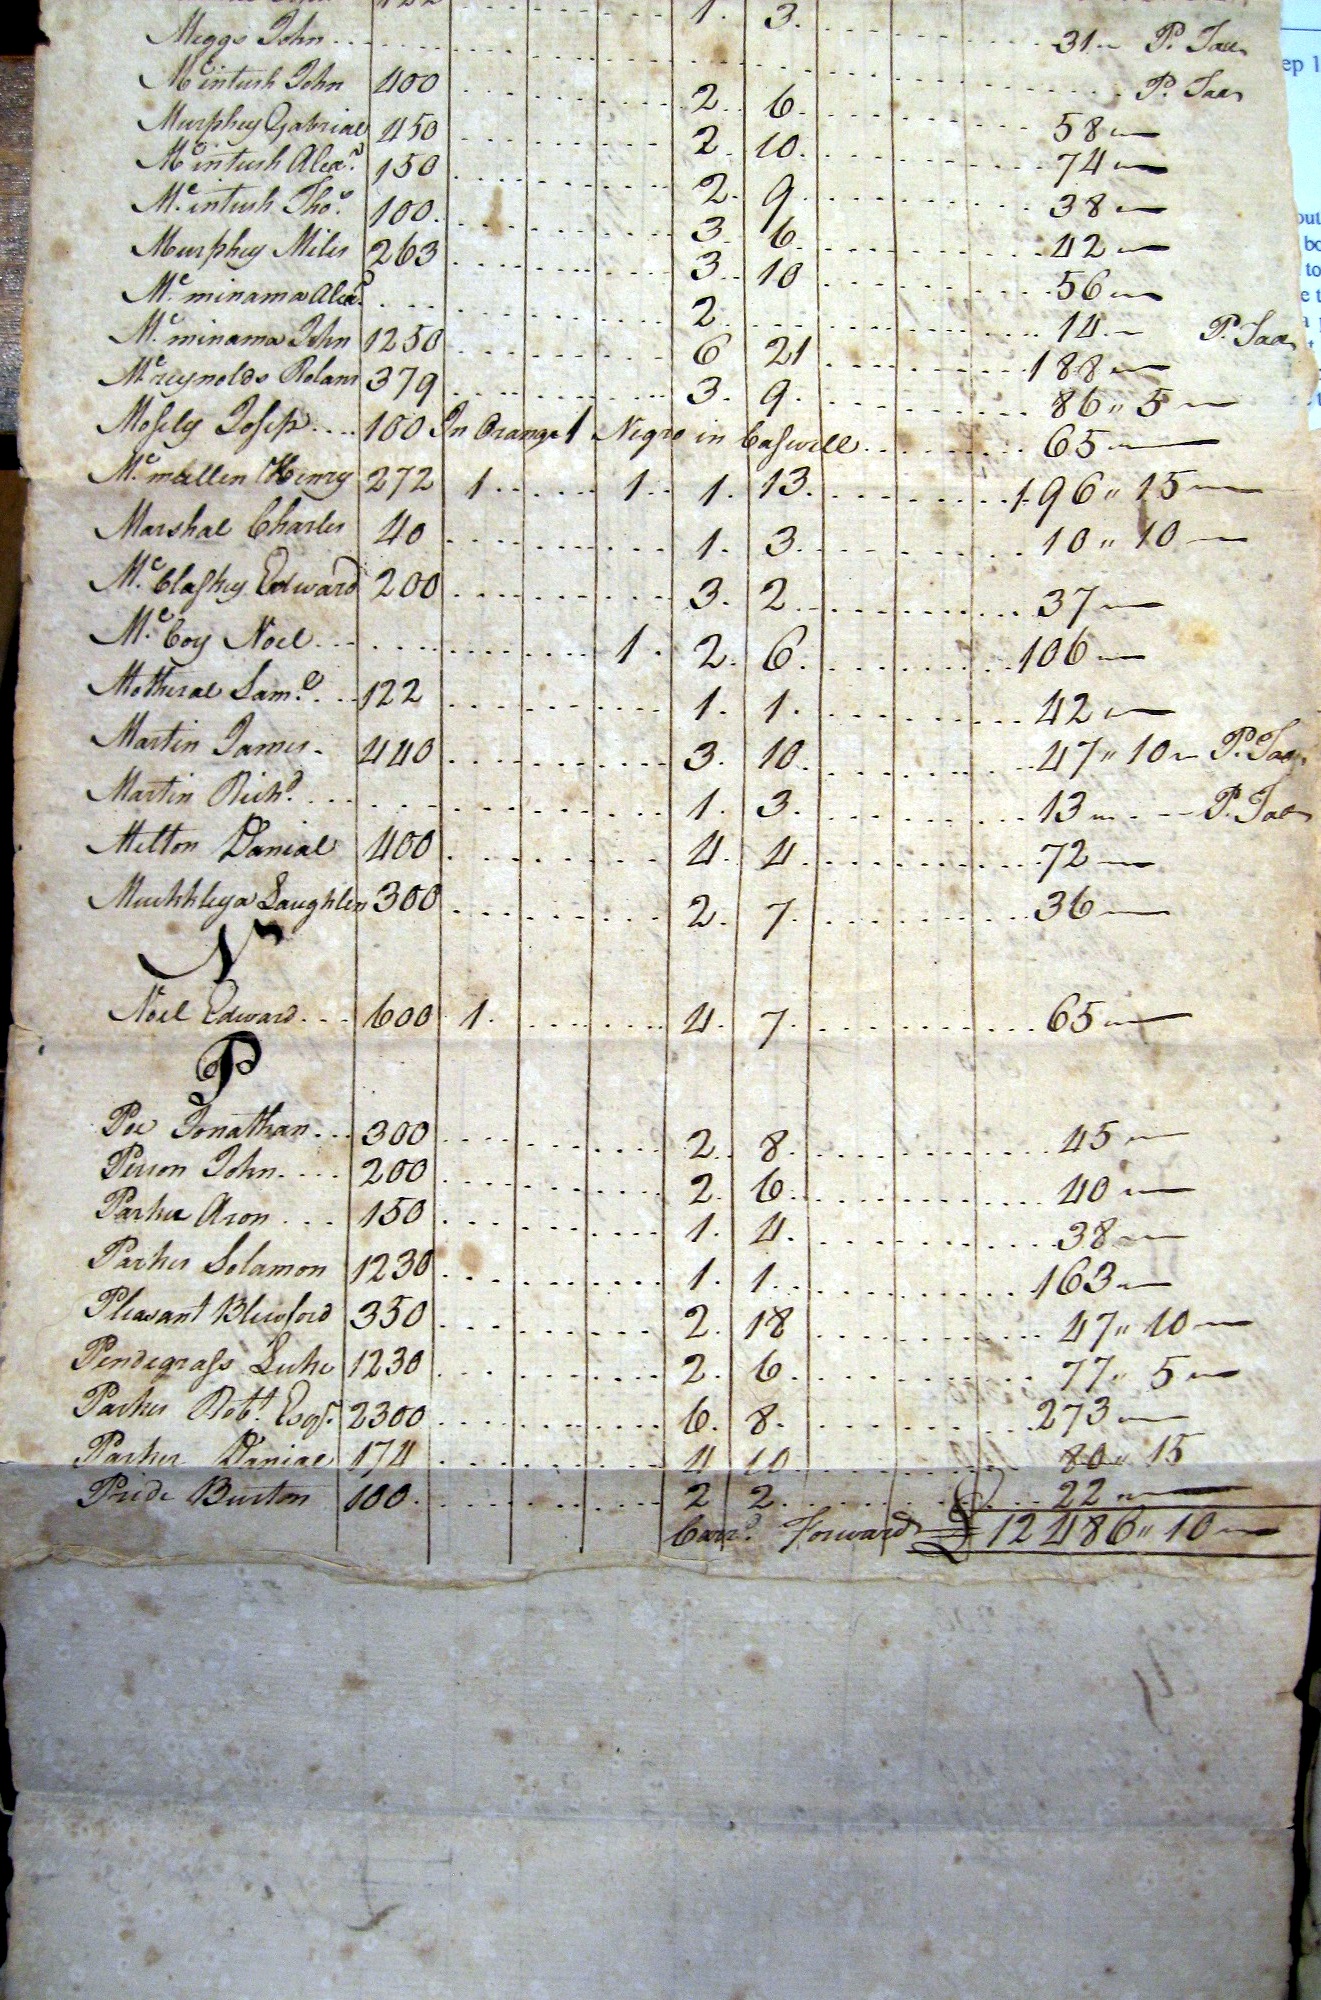 122 1. 3.
Meggs John 31 P. Tax
McIntush John 400 2. 6. P. Tax
Murphey Gabriel 450 2. 10. 58
Mc intush Alexr. 150 2. 9 74
Mc. intush Thos. 100. 3. 6. 38
Murphey Miles 263 3. 10 42
Mc. minama Alexr. 2. 56
Mc. minama John 1250 6 21 14 P. Tax
Mc reynolds Rolan 379 3. 9. 188
Mosely Josep 100 In Orange 1 Negro in Caswell 86 " 5
Mc. mullen Henry 272 1 1. 1. 13. 65
Marshal Charles 40 1. 3. 196 " 15
10 " 10
Mc. Claskey Edward 200 3. 2 37
Mc. Coy Noel 1. 2. 6. 106
Motheral Saml. 122 1. 1. 42
Martin James 440 3. 10. 47 " 10 P. Tax
Martin Richd. 1. 3. 13 P. Tax
Milton Danial 400 4. 4. 72
Laughlin 300 2. 7. 36
N
Noel Edward 600 1. 4. 7. 65
P
Poe Jonathan 300 2. 8. 45
Person John 200 2. 6. 40
Parker Aron 150 1. 4. 38
Parker Solamon 1230 1. 1. 163
Pleasant Bluford 350 2. 18 47 " 10
Pendegrass Luke 1230 2. 6. 77 " 5
Parker Robt. Esqr. 2300 6. 8. 273
Parker Danial 174 4 10 80 " 15
Pride Burton 100. 2 2. 22
Carrd. Forward £ 12486 " 10
ep 1
out
bo
to
e t
a p